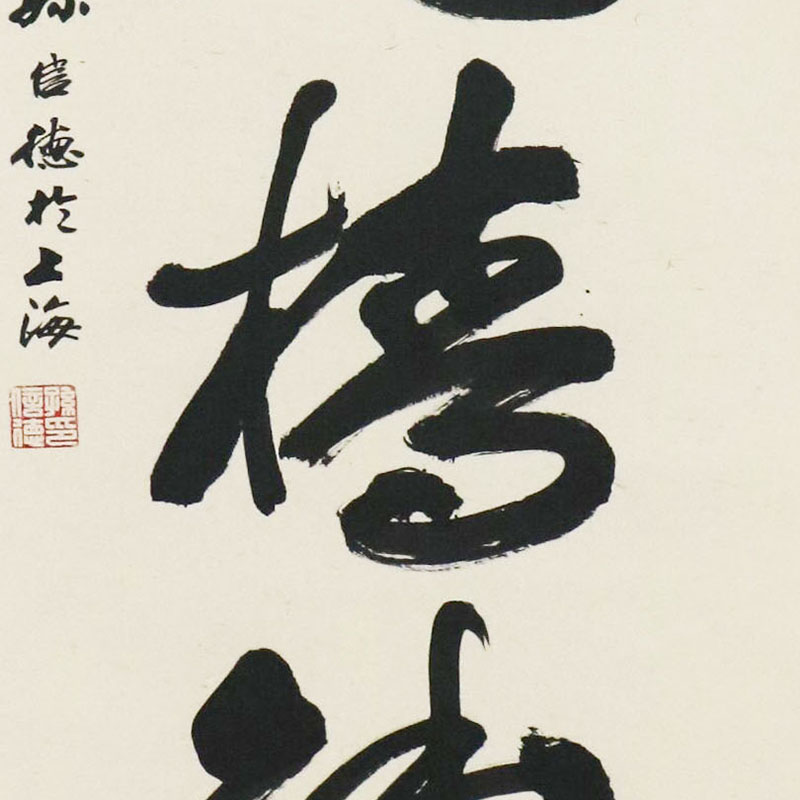 精
孫信德於上海
孫信德印